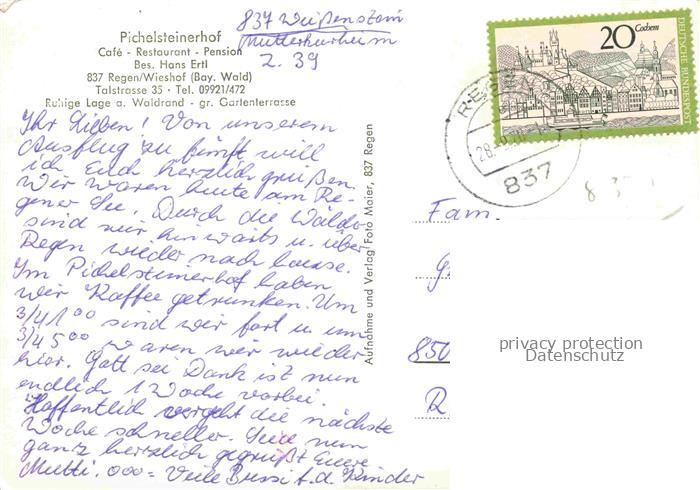 Pichelsteinerhof
Café - Restaurant - Pension
Bes. Hans Ertl
837 Regen/Wieshof (Bay. Wald)
Talstrasse 35 · Tel. 09921/472
Ruhige Lage a. Waldrand - gr. Gartenterrasse
837 Weißenstein
Mütterkurheim
Z. 39
Ihr Lieben! Von unserem
Ausflug zu fünft will
ich Euch herzlich grüßen.
Wir waren heute am Re-
gener See. Durch die Wälder
sind wir hinwärts u. über
Regen wieder nach hause.
Im Pichelsteinerhof haben
wir Kaffee getrunken. Um
3/4 1 00 sind wir fort u. um
3/4 5 00 waren wir wieder
hier. Gott sei Dank ist nun
endlich 1 Woche vorbei.
Hoffentlich vergeht die nächste
Woche schneller. Seid nun
ganz herzlich gegrüßt Euere
Mutti. 000 = Viele Bussi f. d. Kinder
Aufnahme und Verlag Foto Maier, 837 Regen
20 Cochem
DEUTSCHE BUNDESPOST
837
Fam.
850
R
privacy protection
Datenschutz